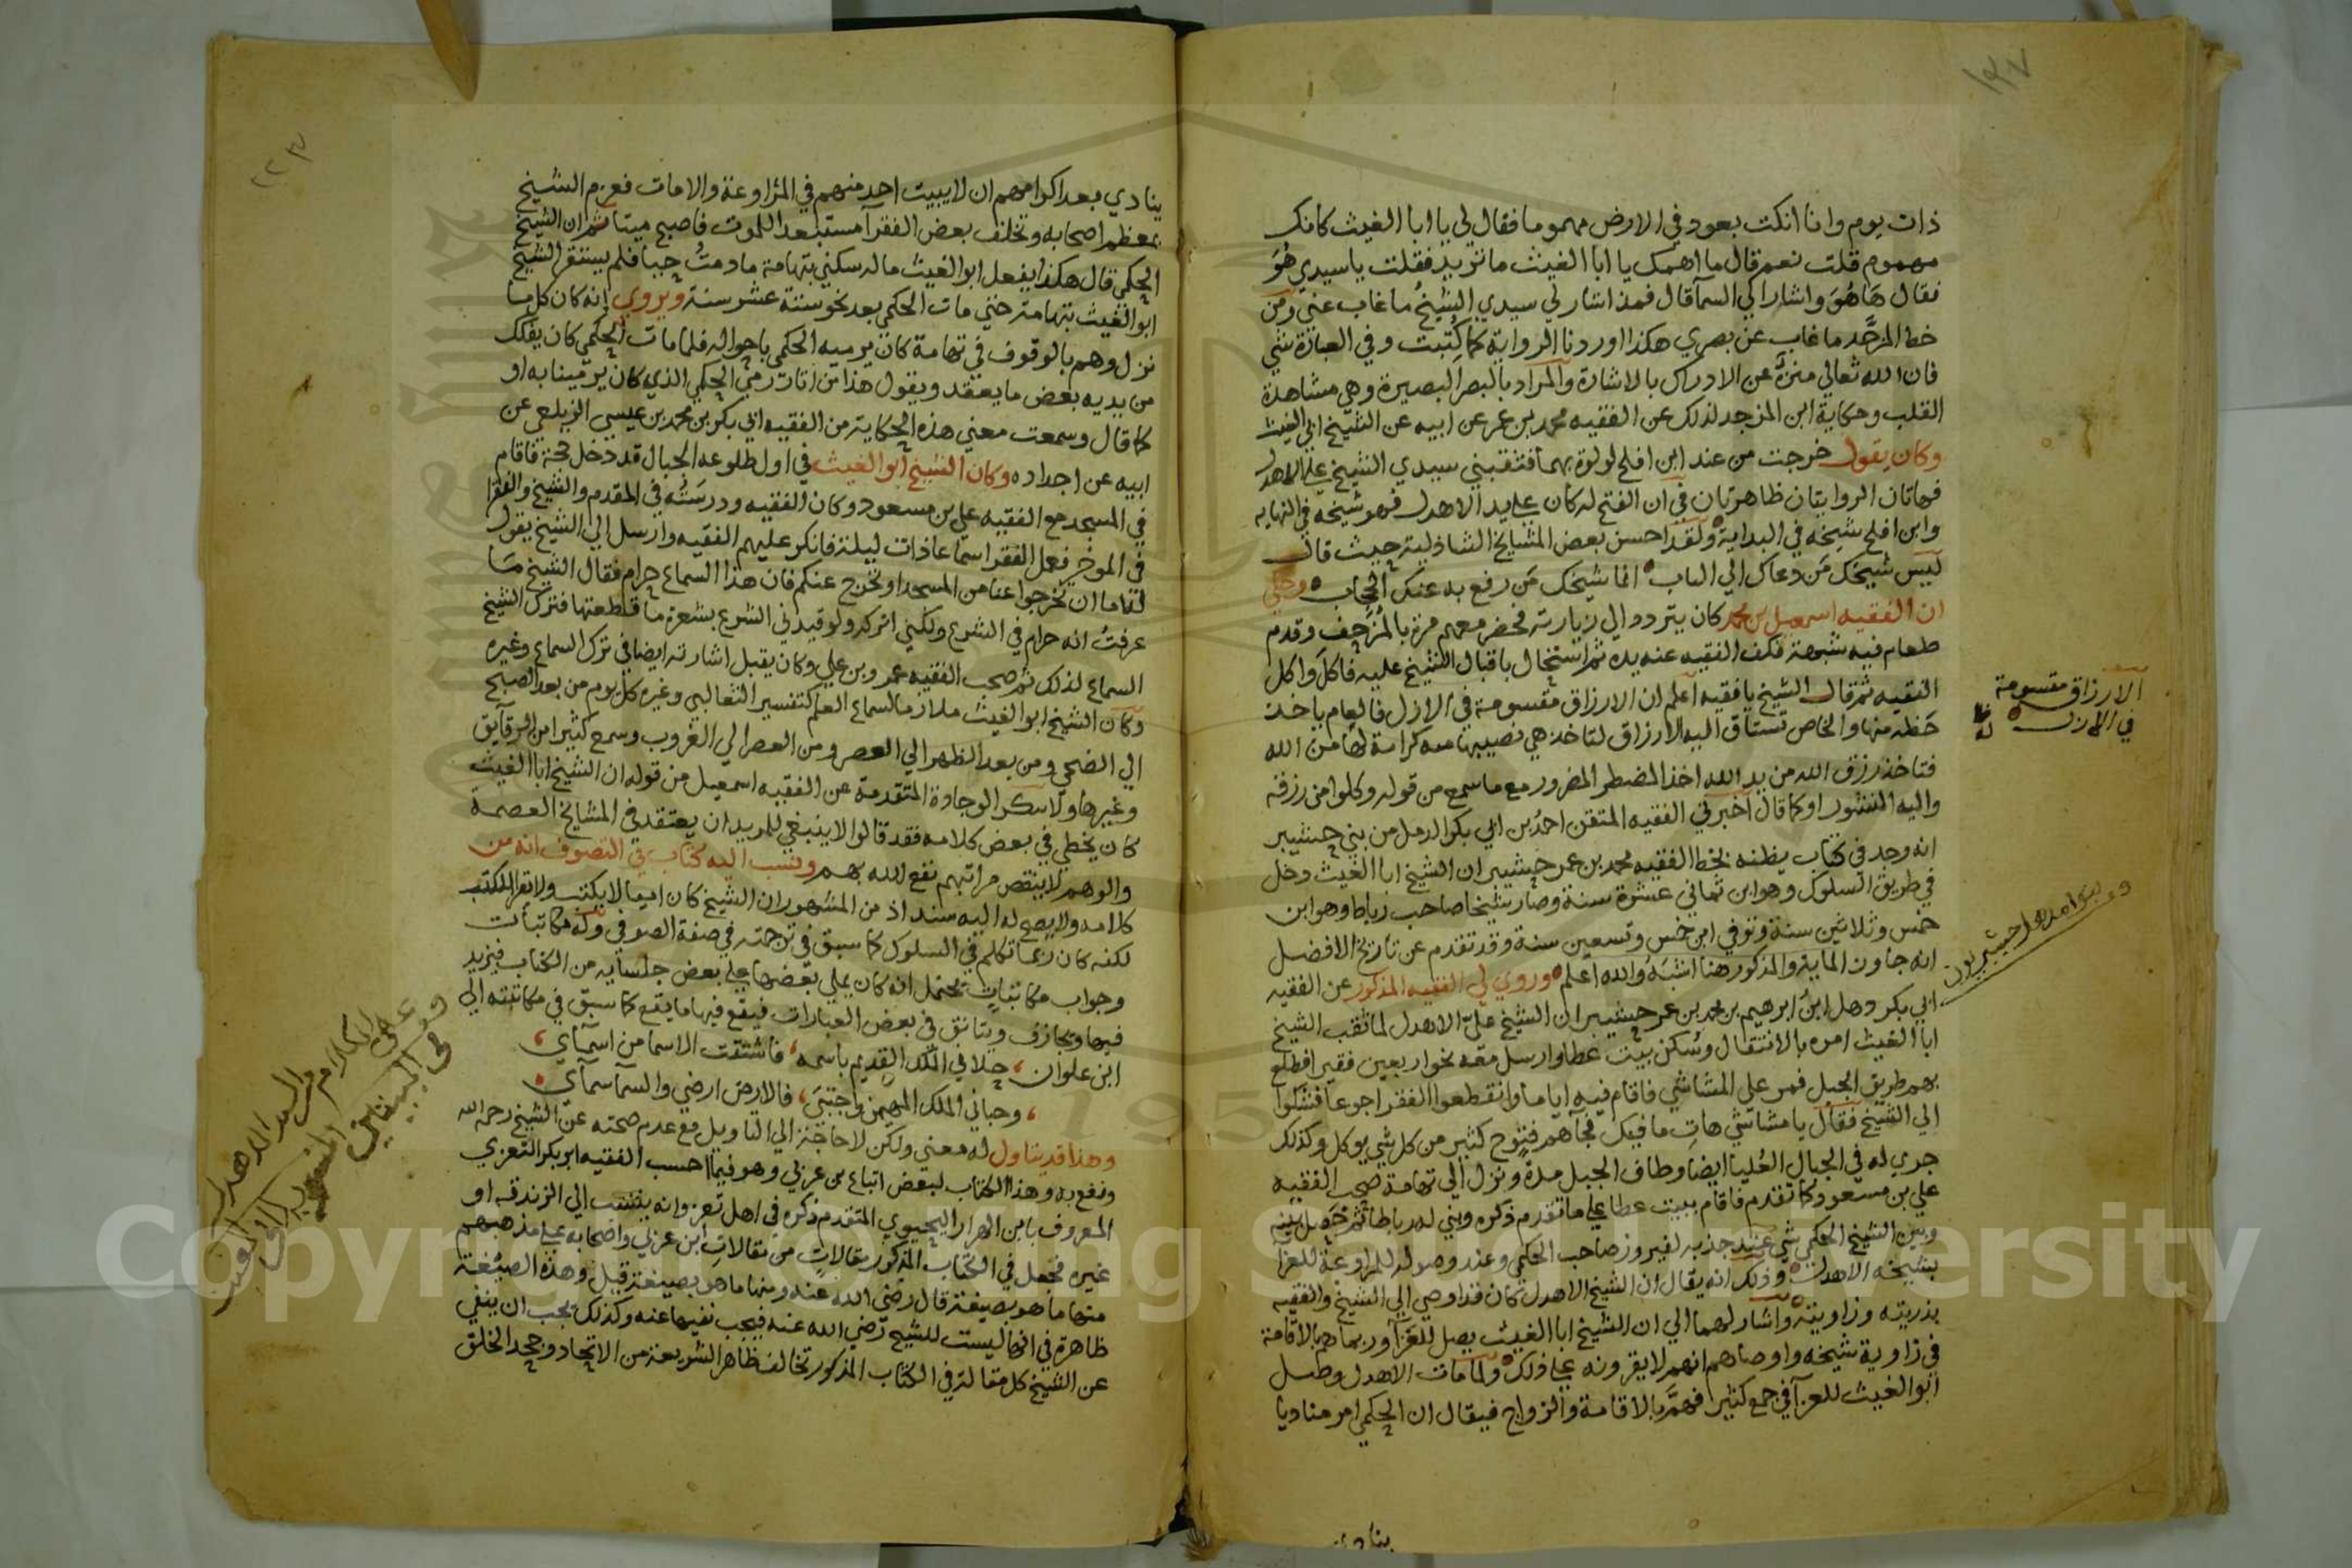 ١٣٧
ذات يوم وانا انكت بعود في الارض مهموما فقال لي يا ابا الغيث كانك
مهموم قلت نعم قال ما اهمك يا ابا الغيث ما تريد فقلت يا سيدي هُوَ
فقال هَاهُوَ واشار الي السمآ قال فمذ اشار لي سيدي الشيخُ ما غاب عني ومن
خط المزجَّد ما غاب عن بصري هكذا اوردنا الرواية كما كُتبت وفي العبارة شي
فان الله تعالي منزهٌ عن الادراك بالاشارة والمراد بالبصر البصيرة وهي مشاهدة
القلب وحكاية ابن المزجد لذلك عن الفقيه محمد بن عمر عن ابيه عن الشيخ ابي الغيث
وكان يقول خرجت من عند ابن افلح لولوة بهما فثقبني سيدي الشيخ علي الاهدل
فهاتان الروايتان ظاهرتان في ان الفتح له كان علي يد الاهدل فهو شيخه في النهايه
وابن افلح شيخه في البداية ولقد احسن بعض المشايخ الشاذلية حيث قال
ليس شيخك مَن دعاك الي الباب انما شيخك مَن رفع به عنك الحجاب وحكي
ان الفقيه اسمعيل بن محمد كان يتردد الي زيارته فحضر معهم مرة بالمُزحِف وقدم
طعام فيه شبهة فكف الفقيه عنه يده ثم استخال باقبال الشيخ عليه فاكل واكل
الفقيه ثم قال الشيخ يا فقيه اعلم ان الارزاق مقسومة في الازل فالعام ياخذ
حَظه منها والخاص تشتاق اليه الارزاق لتاخذ هي نصيبها منه كرامة لها من الله
فتاخذ رزق الله من يد الله اخذ المضطر المضرور مع ما سمع من قوله وكلوا من رزقه
واليه النشور او كما قال اخبرني الفقيه المتقن احمد بن ابي بكر الدمل من بني حشيبر
انه وجد في كتاب يظنه بخط الفقيه محمد بن عمر حشيبر ان الشيخ ابا الغيث دخل
في طريق السلوك وهو ابن ثماني عشرة سنة وصار شيخا صاحب رباط وهو ابن
خمس وثلاثين سنة وتوفي ابن خمس وتسعين سنة وقد تقدم عن تاريخ الافضل
انه جاوز الماية والمذكور هنا اشبَهُ والله اعلم وروي لي الفقيه المذكور عن الفقيه
ابي بكر دهل ابنُ ابرهيم بن محمد بن عمر حشيبر ان الشيخ علي الاهدل لما ثقب الشيخ
ابا الغيث امره بالانتقال وسُكن بيت عطا وارسل معه نحو اربعين فقير افطلع
بهم طريق الجبل فمر علي المشاشي فاقام فيه اياما وانقطعوا الفقرا جوعا فشكوا
الي الشيخ فقال يا مشاشي هاتِ ما فيك فجآهم فتوح كثير من كل شي يوكل وكذلك
جري له في الجبال العُليا ايضا وطاف الجبل مدة ونزل الي تهامة صحب الفقيه
علي بن مسعود كما تقدم فاقام ببيت عطا علي ما تقدم ذكره وبني له رباطا ثم حَصل بينه
وبين الشيخ الحكمي شي عند جذبه لفيروز صاحب الحكمي وعند وصوله للمراوعة للعزا
بشيخه الاهدل وذلك انه يقال ان الشيخ الاهدل كان قد اوصي الي الشيخ والفقيه
بذريته وزاويته واشار لهما الي ان الشيخ ابا الغيث يصل للعزآ وربما هم بالاقامة
في زاوية شيخه واوصاهم انهم لا يقرونه علي ذلك ولما مات الاهدل وصل
ابو الغيث للعزآ في جمع كثير فهمَّ بالاقامة والزواج فيقال ان الحكمي امر مناديا
ينادي
الارزاق مقسومة
في الازل
بنوا دهل حشيبريون
٢٢٣
ينادي بعد اكرامهم ان لا يبيت احد منهم في المراوعة والا مات فعزم الشيخ
بمعظم اصحابه وتخلف بعض الفقرآ مستبعدا للموت فاصبح ميتا ثم ان الشيخ
الحكمي قال هكذا يفعل ابو الغيث ماله سكني بتهامة ما دمتُ حيا فلم يستقر الشيخ
ابو الغيث بتهامة حتي مات الحكمي بعد نحو ستة عشر سنة ويروي انه كان كل ما
نزل وهم بالوقوف في تهامة كان يرميه الحكمي باحواله فلما مات الحكمي كان يفكك
من يديه بعض ما يعقد ويقول هذا من اثات رمي الحكمي الذي كان يرمينا به او
كما قال وسمعت معني هذه الحكاية من الفقيه ابي بكر بن محمد بن عيسي الزيلعي عن
ابيه عن اجداده وكان الشيخ ابو الغيث في اول طلوعه الجبال قد دخل حجة فاقام
في المسجد مع الفقيه علي بن مسعود وكان الفقيه ودرسَتُه في المقدم والشيخ والفقرا
في الموخر فعمل الفقرا سماعا ذات ليلة فانكر عليهم الفقيه وارسل الي الشيخ يقول
له اما ان تخرجوا عنا من المسجد او نخرج عنكم فان هذا السماع حرام فقال الشيخ ما
عرفتُ انه حرام في الشرع ولكني اتركه ولو قيدني الشرع بشعرة ما قطعتها فترك الشيخ
السماع لذلك ثم صحب الفقيه عمرو بن علي وكان يقبل اشارته ايضا في ترك السماع وغيره
وكان الشيخ ابو الغيث ملازما لسماع العلم كتفسير الثعالبي وغيره كل يوم من بعد الصبح
الي الضحي ومن بعد الظهر الي العصر ومن العصر الي الغروب وسمع كثيرا من الرقآيق
وغيرها ولا ينكر الوجادة المتقدمة عن الفقيه اسمعيل من قوله ان الشيخ ابا الغيث
كان يخطي في بعض كلامه فقد قالوا لا ينبغي للمريد ان يعتقد في المشايخ العصمة
والوهم لا ينقص مراتبهم نفع الله بهم ونسب اليه كتاب في التصوف انه من
كلامه ولا يصح له اليه سند اذ من المشهور ان الشيخ كان اميا لا يكتب ولا يقرا المكتب
لكنه كان ربما تكلم في السلوك كما سبق في ترجمته في صفة الصوفي وله مكاتبات
وجواب مكاتباتٍ تحتمل انه كان يملي بعضها علي بعض جلسآيه من الكتاب فيزيد
فيها ويجازف ويتانق في بعض العبارات فيقع فيها ما يقع كما سبق في مكاتبته الي
ابن علوان ، جلا في الملك القديم باسمه ، فاشتقت الاسما من اسمآي ،
، وحباني الملك المهيمن واجتبي ، فالارض ارضي والسمآ سمآي
وهذا قد يتاول له معني ولكن لا حاجة الي التاويل مع عدم صحته عن الشيخ رحمه الله
ونفع به وهذا الكتاب لبعض اتباع بن عربي وهو فيما احسب الفقيه ابو بكر التعزي
المعروف بابن الهزار اليحيوي المتقدم ذكره في اهل تعز وانه ينتسب الي الزندقه او
غيره فجعل في الكتاب المذكور مقالاتٍ من مقالات ابن عربي واصحابه علي مذهبهم
منها ما هو بصيغة قال رضي الله عنه ومنها ما هو بصيغة قيل وهذه الصيغة
ظاهرة في انها ليست للشيخ رضي الله عنه فيجب نفيها عنه وكذلك يجب ان ينفي
عن الشيخ كل مقالة في الكتاب المذكور تخالف ظاهر الشريعة من الاتحاد وجحد الخلق
Copyright © King Saud University
195